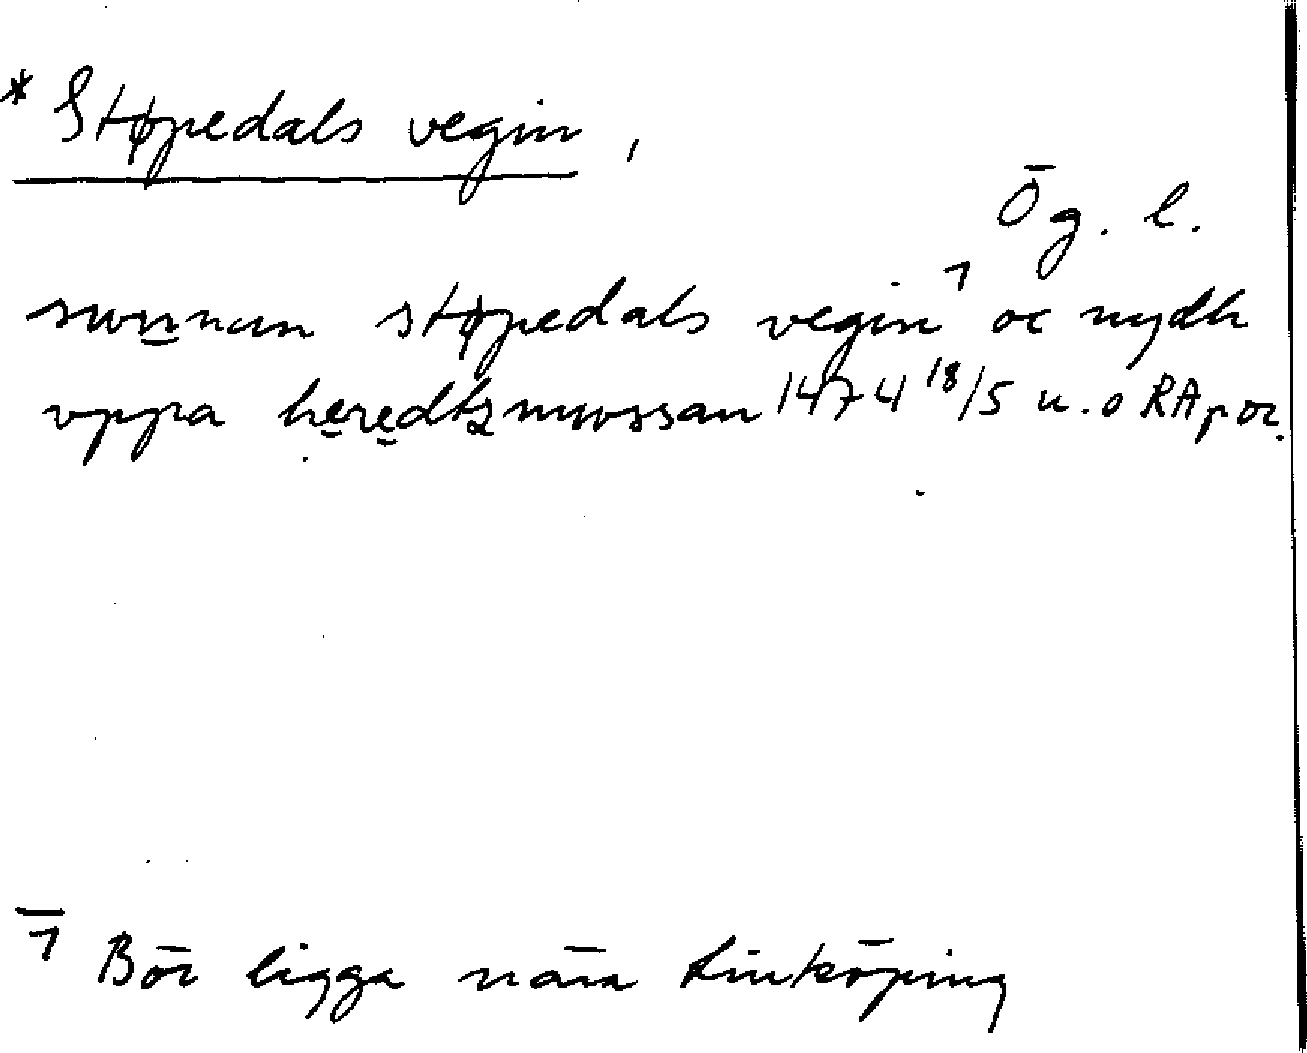 * Støpedals vegin,
Ög. l.
sunnan støpedals vegin ¹ oc nydh
vppa heredhzmwssan 1474 18/5 u.o RAp or.
1 Bör ligga nära Linköping